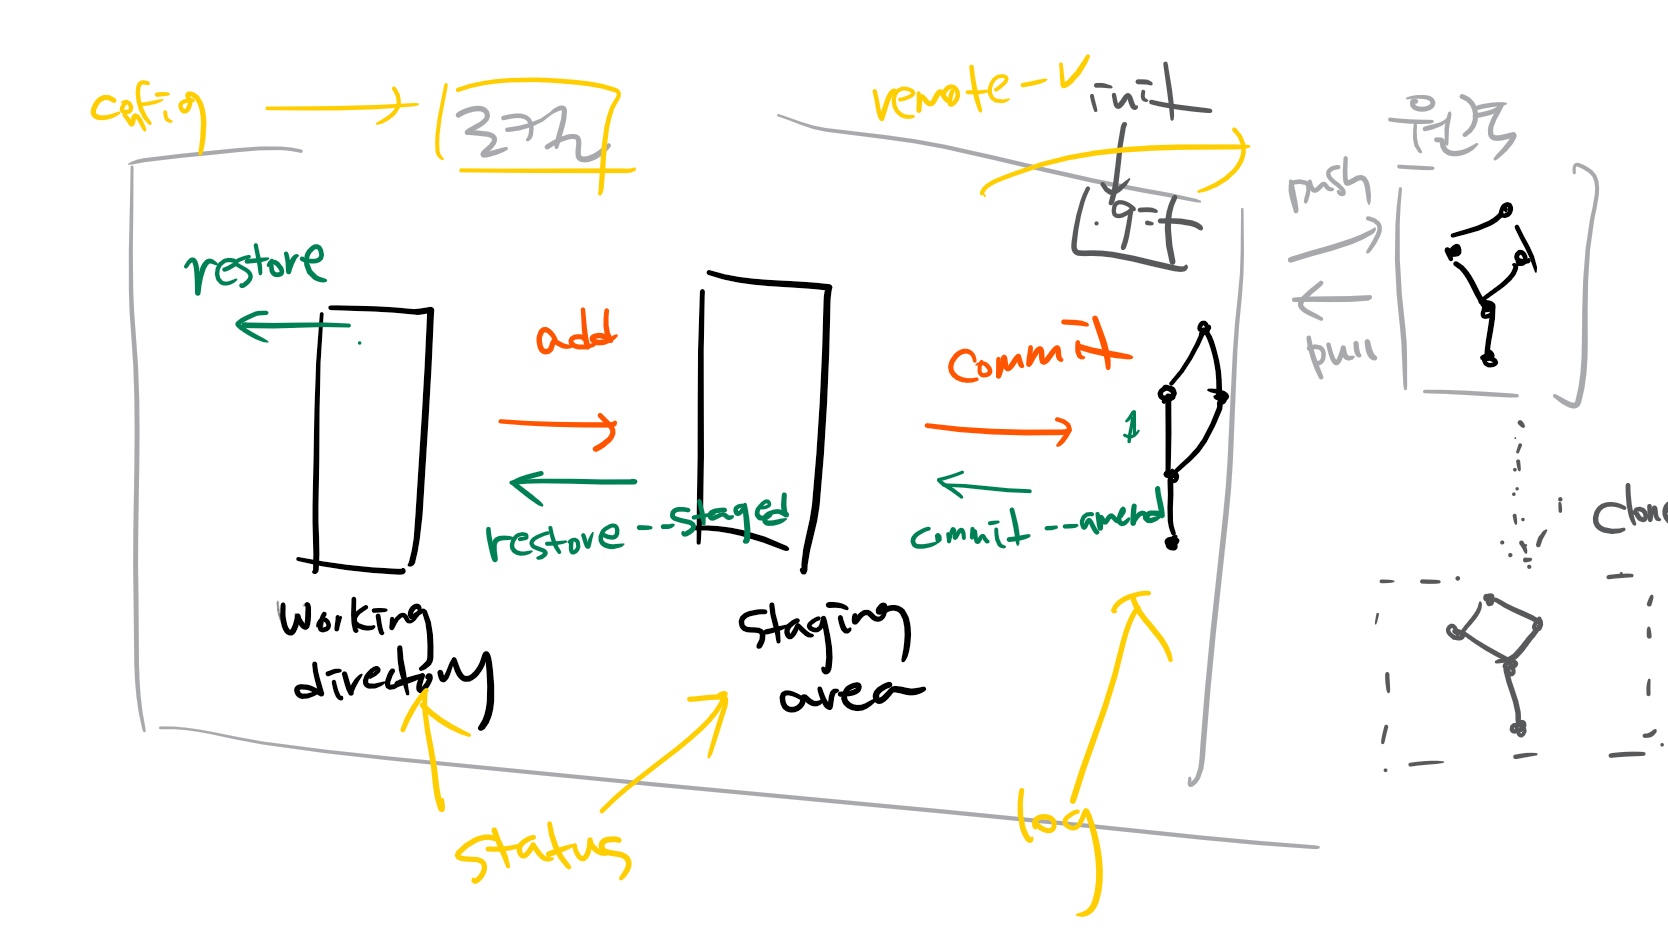 config
로컬
remote -v
init
.git
원격
push
pull
restore
add
commit
1
restore --staged
commit --amend
clone
working
directory
staging
area
status
log